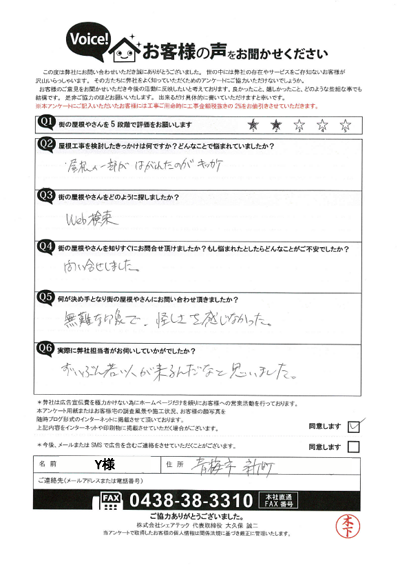 Voice!
お客様の声をお聞かせください
この度は弊社にお問い合わせいただき誠にありがとうございました。世の中には弊社の存在やサービスをご存知ないお客様が
沢山いらっしゃいます。その方たちに弊社をよく知っていただくためのアンケートにご協力いただけないでしょうか。
お客様のご意見をお聞かせいただき今後の活動に反映したいと考えております。良かったこと、嬉しかったこと、どのような些細な事でも
結構です。是非ご協力のほどお願いいたします。出来るだけ具体的に書いていただけますと幸いです。
※本アンケートにご記入いただいたお客様には工事ご用命時に工事金額税抜きの2%をお値引きさせていただきます。
Q1 街の屋根やさんを5段階で評価をお願いします ★ ★ ☆ ☆ ☆
Q2 屋根工事を検討したきっかけは何ですか？どんなことで悩まれていましたか？
屋根の一部がはがれたのがキッカケ
Q3 街の屋根やさんをどのように探しましたか？
Web検索
Q4 街の屋根やさんを知りすぐにお問合せ頂けましたか？もし悩まれたとしたらどんなことがご不安でしたか？
問い合せしました。
Q5 何が決め手となり街の屋根やさんにお問い合わせ頂きましたか？
無難な印象で、怪しさを感じなかった。
Q6 実際に弊社担当者がお伺いしていかがでしたか？
ずいぶん若い人が来るんだなと思いました。
＊弊社は広告宣伝費を極力かけない為にホームページだけを頼りにお客様への営業活動を行っております。
本アンケート用紙またはお客様宅の調査風景や施工状況、お客様の顔写真を
随時ブログ形式のインターネットに掲載させて頂いております。
上記内容をインターネットや印刷物に掲載させていただく場合がございます。 同意します ☑
＊今後、メールまたはSMSで広告を含むご連絡をさせていただくことがございます。 同意します □
名前 Y様 住所 青梅市 新町
ご連絡先(メールアドレスまたは電話番号)
FAX 0438-38-3310 本社直通 FAX番号
ご協力ありがとうございました。
株式会社シェアテック 代表取締役 大久保 誠二
当アンケートで取得したお客様の個人情報は関係法規に基づき厳正に管理いたします。
木下